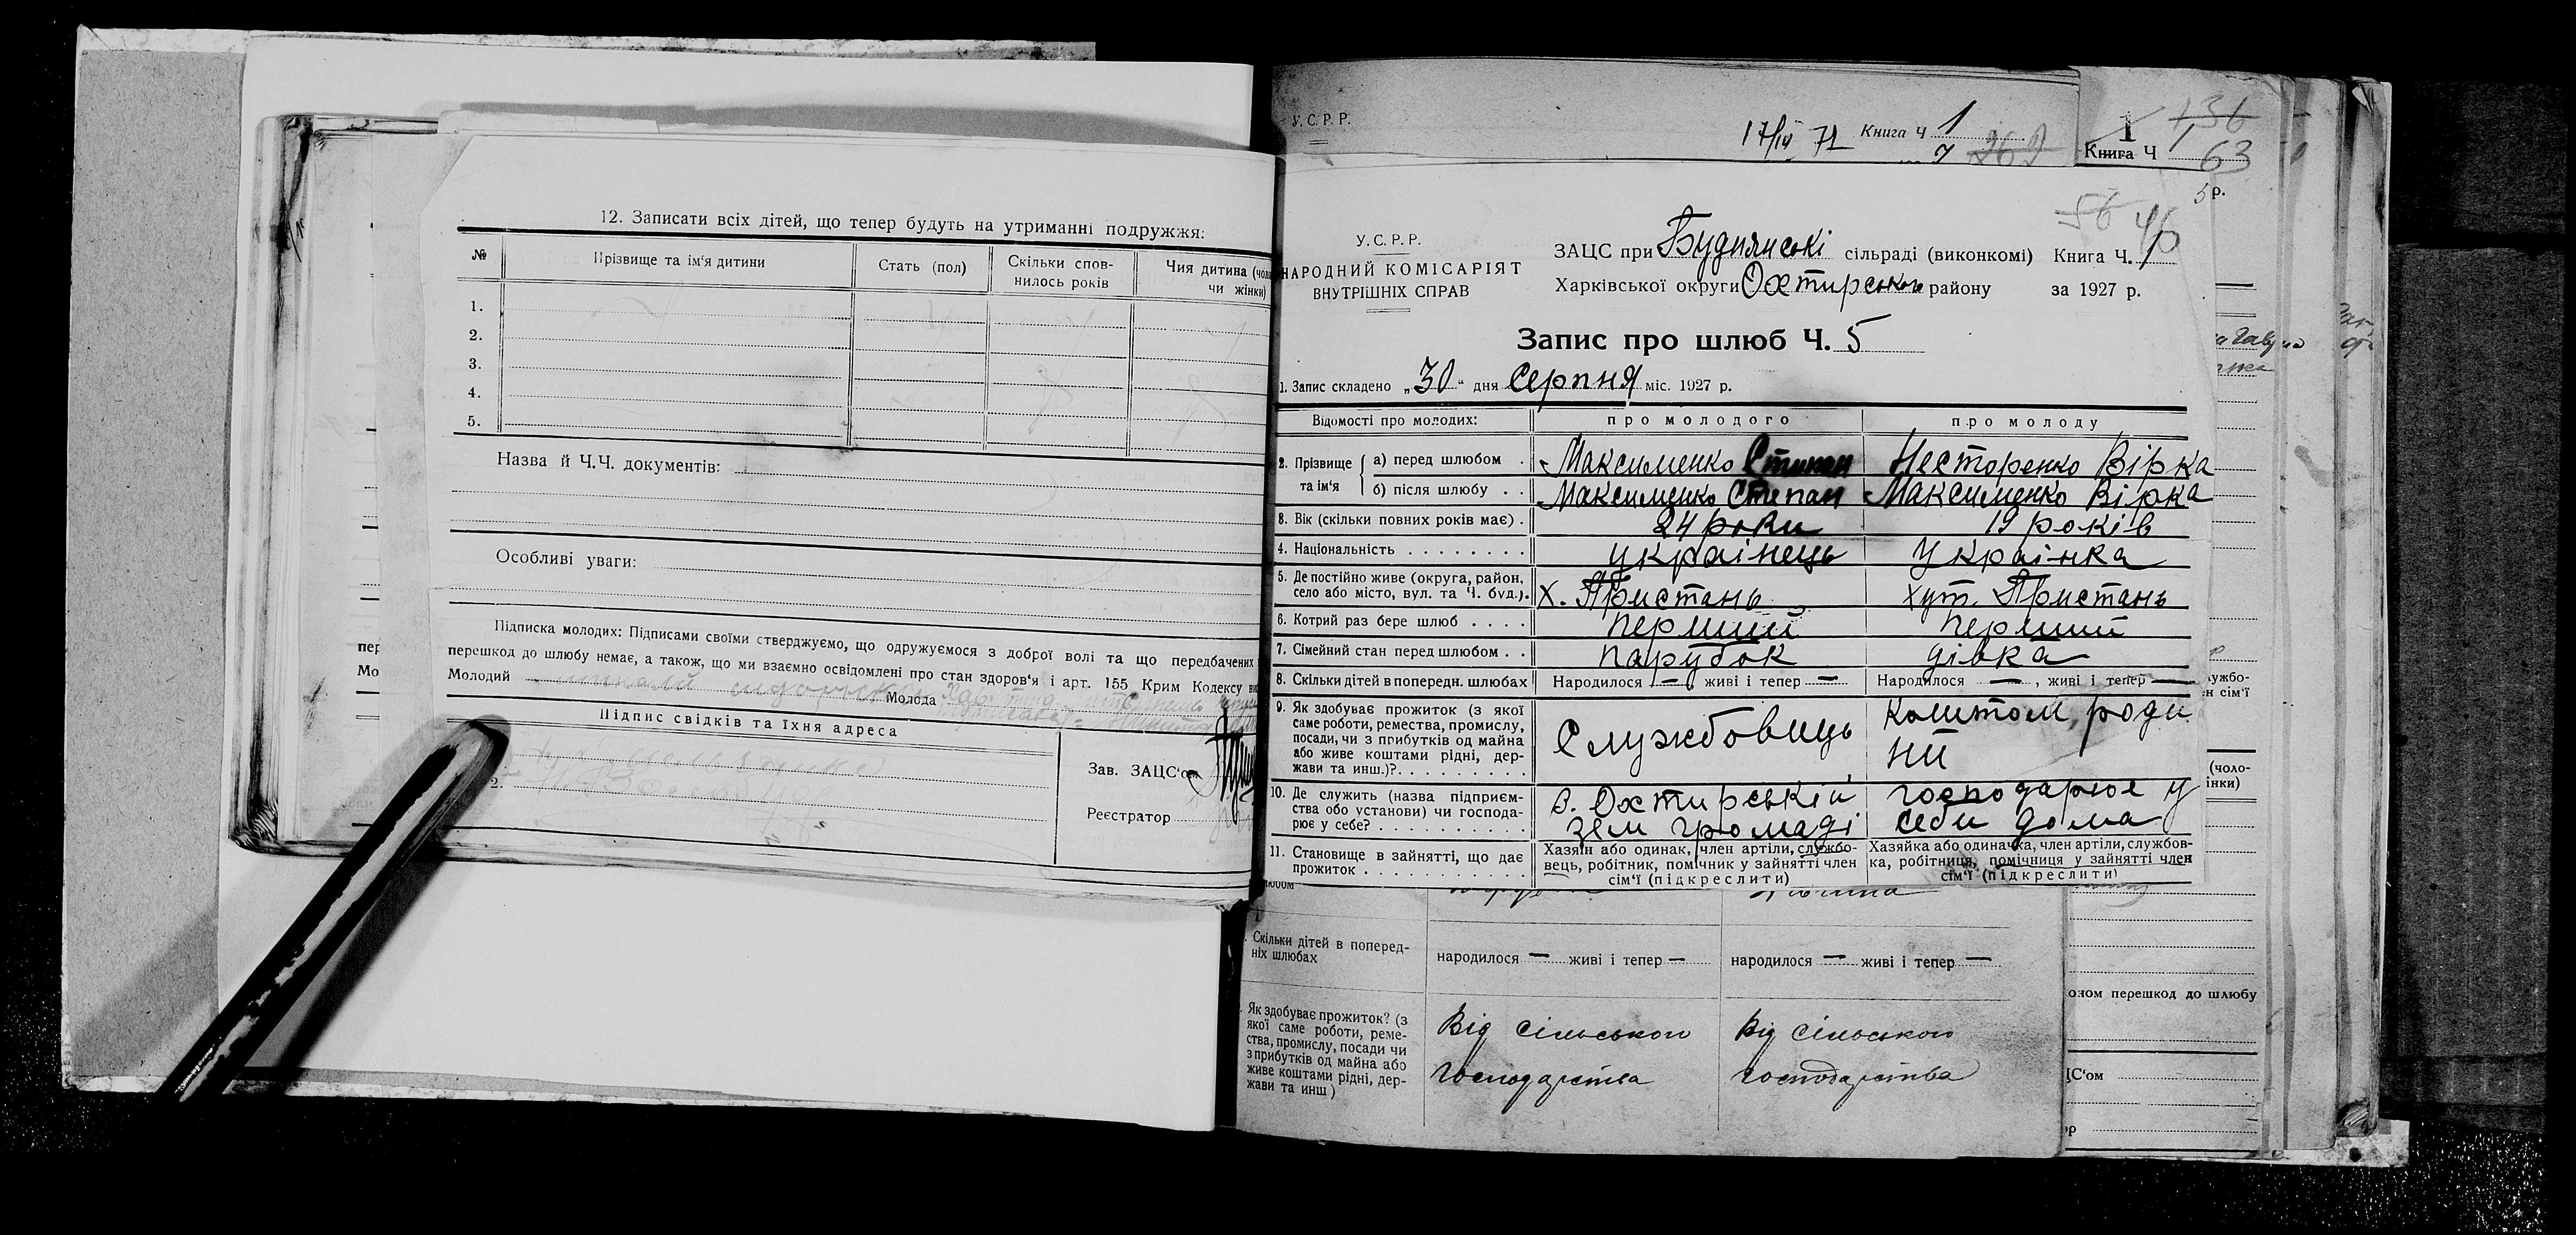 12. Записати всіх дітей, що тепер будуть на утриманні подружжя:
№ Прізвище та ім'я дитини Стать (пол) Скільки спов- Чия дитина (чоло
нилось років чи жінки)
1.
2.
3.
4.
5.
Назва й Ч.Ч. документів:
Особливі уваги:
Підписка молодих: Підписами своїми стверджуємо, що одружуємося з доброї волі та що передбачених
перешкод до шлюбу немає, а також, що ми взаємно освідомлені про стан здоров'я і арт. 155 Крим Кодексу
Молодий Молода
Підпис свідків та їхня адреса
2.
Зав. ЗАЦС'ом
Реєстратор
пер
Мо
У.С.Р.Р.
17/IV 71 Книга Ч 1
7 262
1 136
Книга Ч 1 63
5 р.
56 46
У.С.Р.Р.
НАРОДНИЙ КОМІСАРІЯТ
ВНУТРІШНІХ СПРАВ
ЗАЦС при Буднянські сільраді (виконкомі) Книга Ч. 1
Харківської округи Охтирського району за 1927 р.
Запис про шлюб Ч. 5
1. Запис складено „30" дня Серпня міс. 1927 р.
Відомості про молодих: про молодого про молоду
2. Прізвище та ім'я а) перед шлюбом . Максименко Степан Несторенко Вірка
б) після шлюбу . . Максименко Степан Максименко Вірка
3. Вік (скільки повних років має) . 24 роки 19 років
4. Національність . . . . . . . . українець Українка
5. Де постійно живе (округа, район,
село або місто, вул. та Ч. буд.). х. Пристань хут. Пристань
6. Котрий раз бере шлюб . . . . перший перший
7. Сімейний стан перед шлюбом . . парубок дівка
8. Скільки дітей в попередн. шлюбах Народилося — , живі і тепер — Народилося — , живі і тепер —
9. Як здобуває прожиток (з якої
саме роботи, ремества, промислу,
посади, чи з прибутків од майна
або живе коштами рідні, дер-
жави та инш.)?. . . . . . . . . Службовиць коштом роди
ни
10. Де служить (назва підприєм-
ства або установи) чи господа-
рює у себе? . . . . . . . . . . . в. Охтирській господарює у
зем громаді себи дома
11. Становище в зайнятті, що дає
прожиток . . . . . . . . . . . .
Хазяїн або одинак, член артіли, службо-
вець, робітник, помічник у зайнятті член
сім'ї (підкреслити)
Хазяйка або одиначка, член артіли, службов-
ка, робітниця, помічниця у зайнятті член
сім'ї (підкреслити)
Скільки дітей в поперед-
ніх шлюбах народилося — живі і тепер — народилося — живі і тепер —
Як здобуває прожиток? (з
якої саме роботи, реме-
ства, промислу, посади чи
з прибутків од майна або
живе коштами рідні, дер-
жави та инш)
Від сільського Від сільського
господарства господарства
ужбо-
н сім'ї
(чоло-
інки)
оном перешкод до шлюбу
ЦС'ом
ор